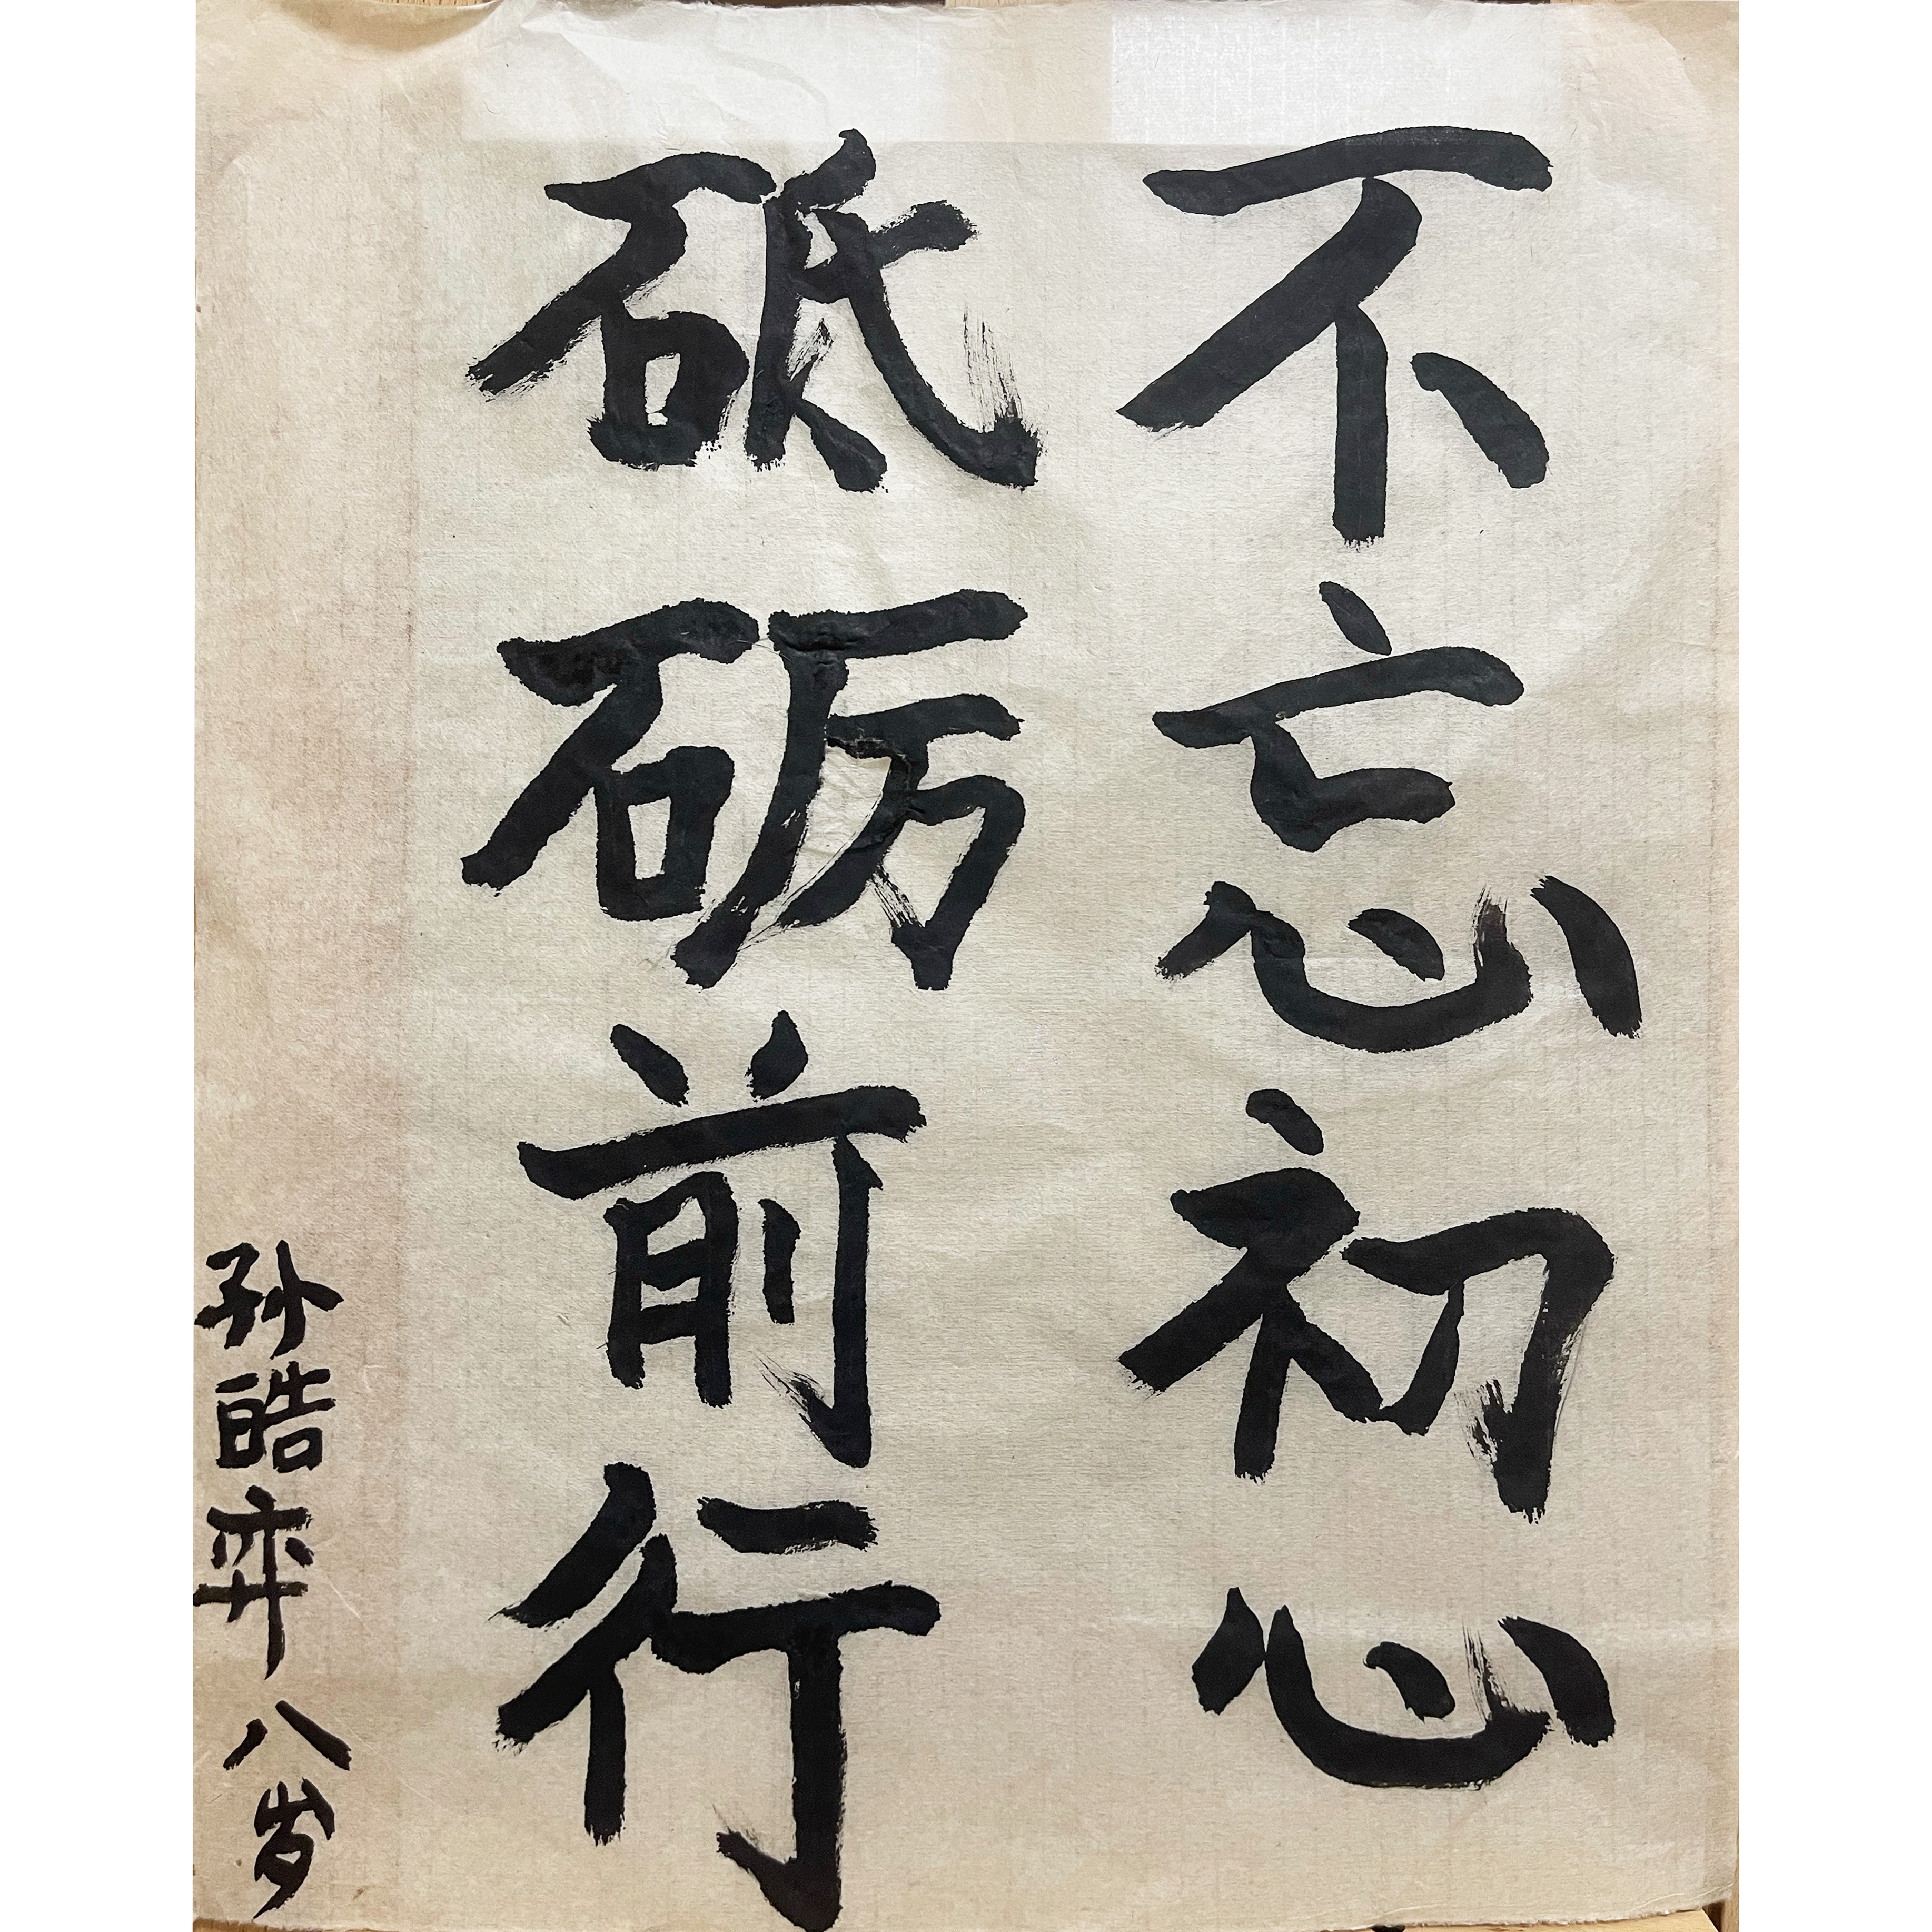 不忘初心
砥砺前行
孙皓弈八岁